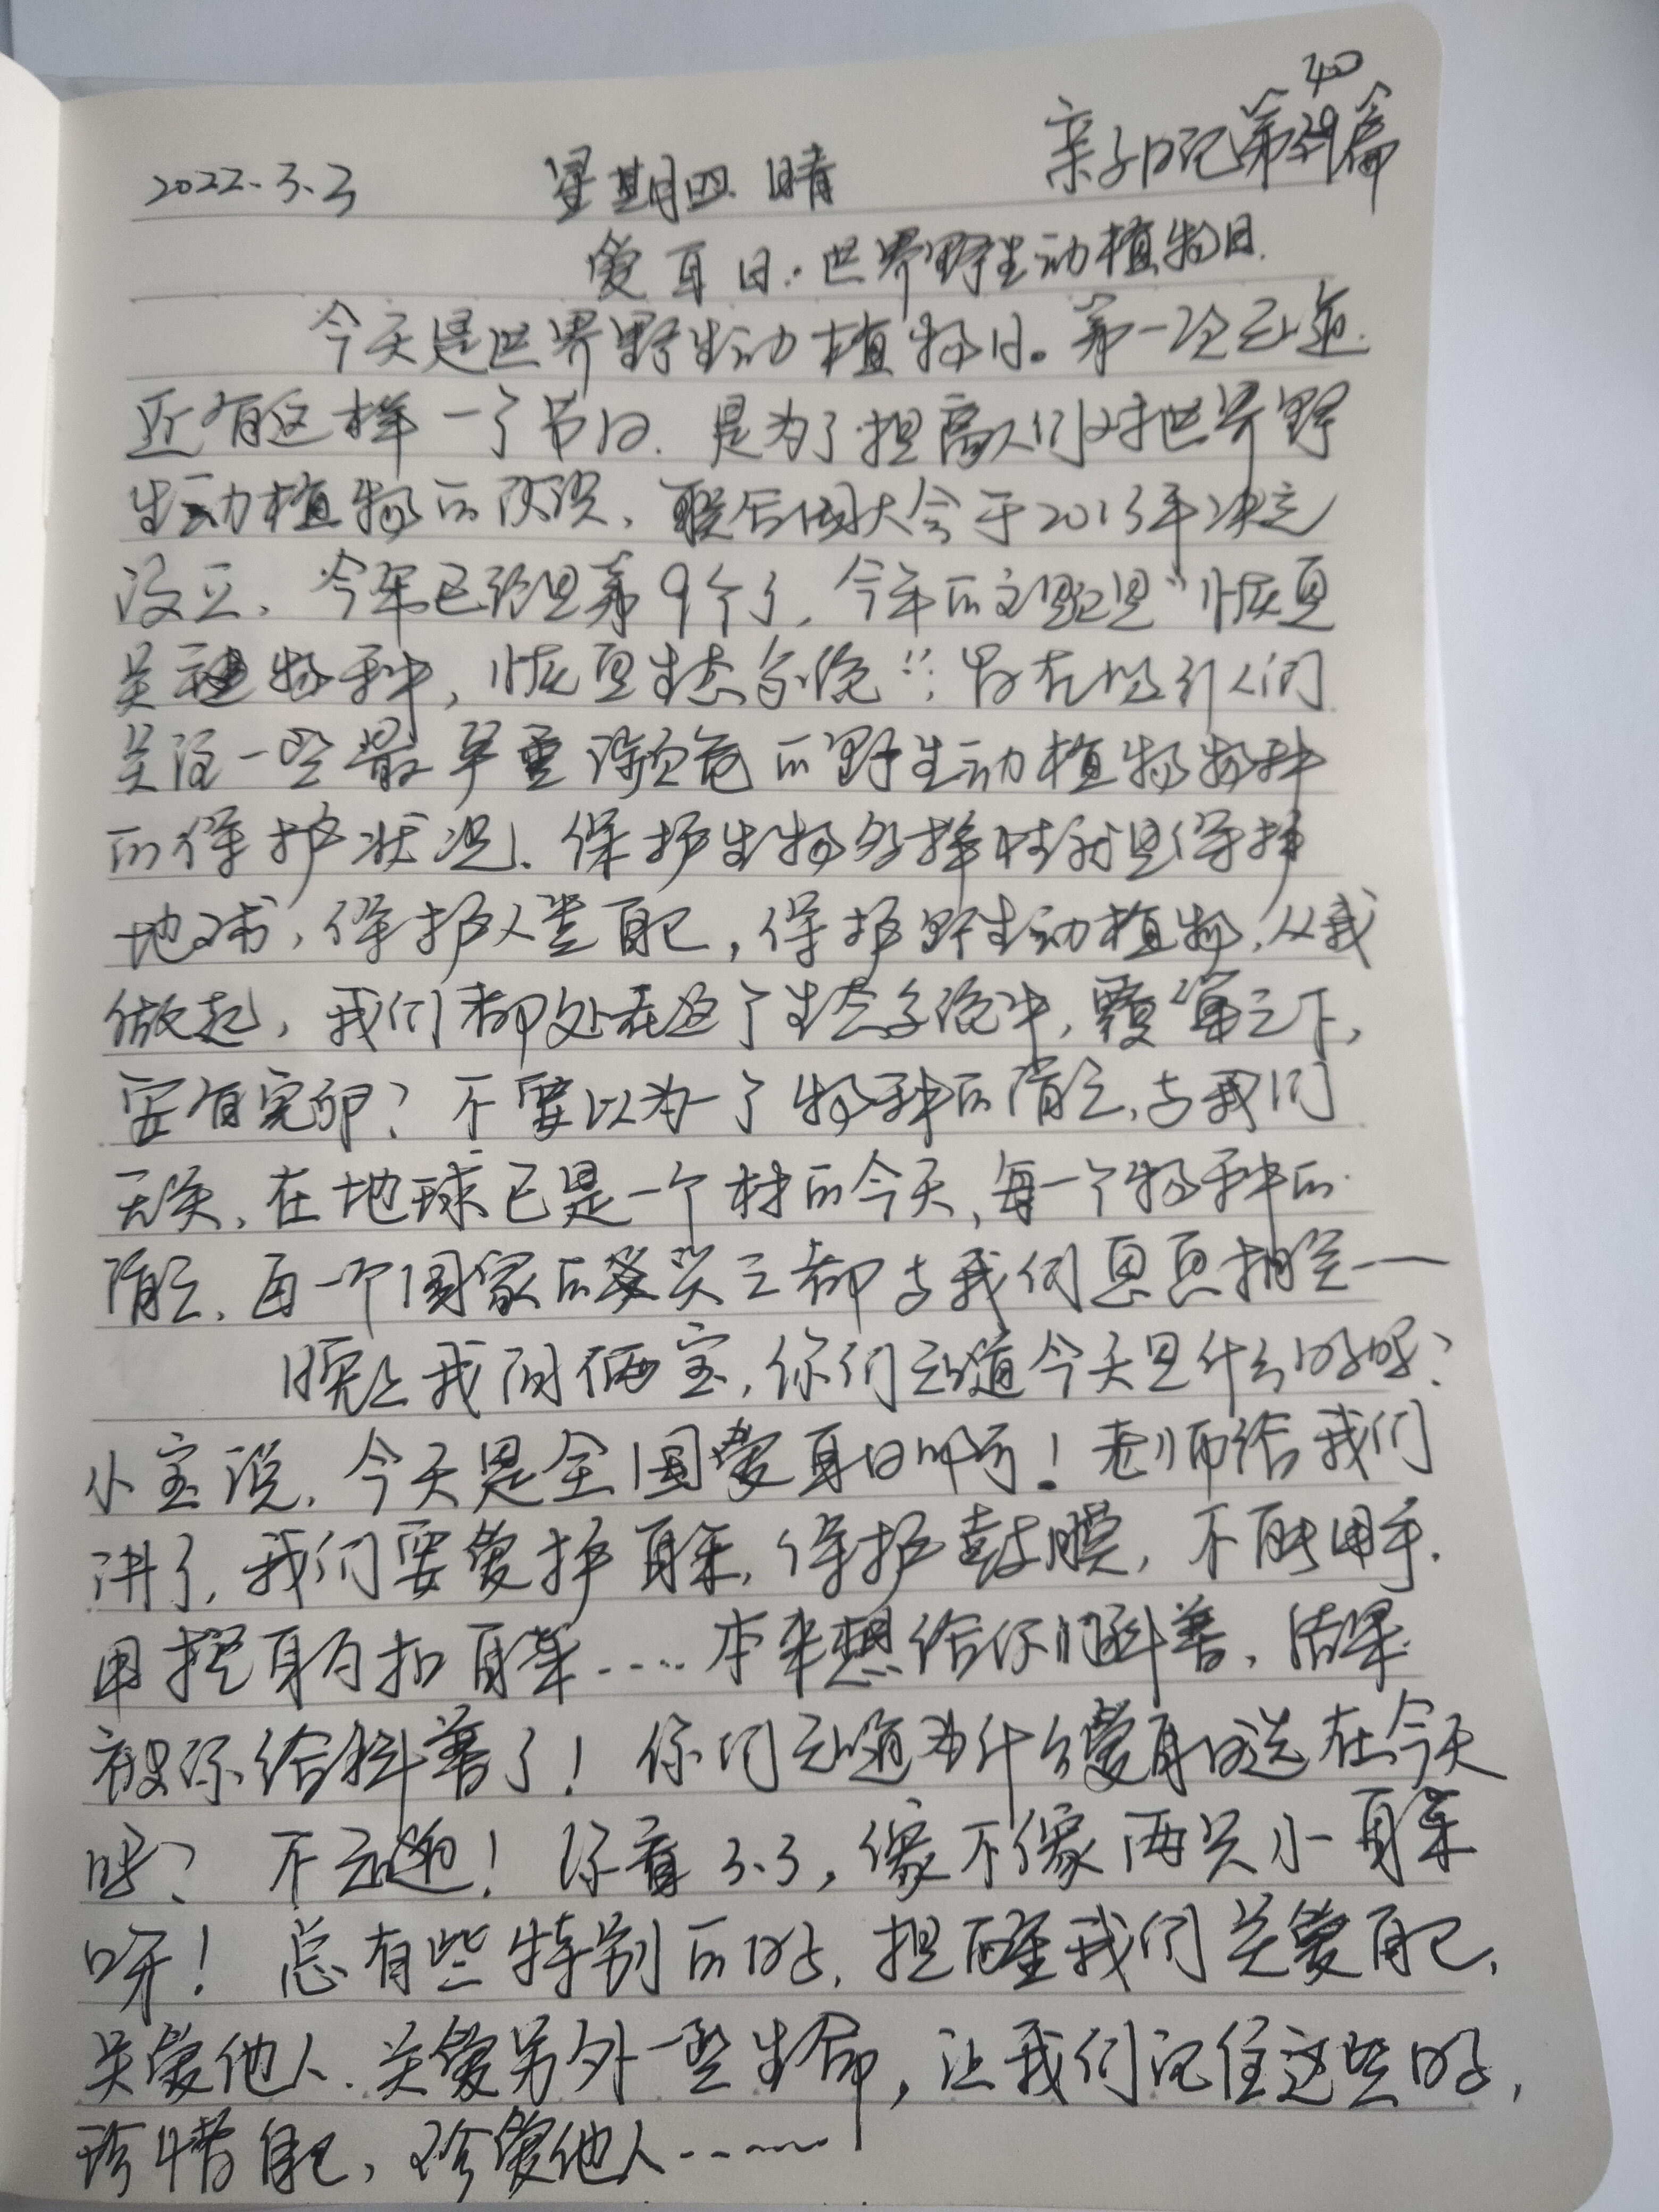 40
2022.3.3 星期四 晴 亲子日记第39篇
爱耳日·世界野生动植物日.
今天是世界野生动植物日。第一次知道
还有这样一个节日.是为了提高人们对世界野
生动植物的认识,联合国大会于2013年决定
设立,今年已经是第9个了,今年的主题是“恢复
关键物种,恢复生态系统”;旨在吸引人们
关注一些最严重濒危的野生动植物物种
的保护状况.保护生物多样性就是保护
地球,保护人类自己,保护野生动植物,从我
做起,我们都处在这个生态系统中,覆巢之下,
安有完卵?不要以为一个物种的消亡,与我们
无关,在地球已是一个村的今天,每一个物种的
消亡,每一个国家的兴亡都与我们息息相关——
晚上我问俩宝,你们知道今天是什么日子呢?
小宝说,今天是全国爱耳日呀!老师给我们
讲了,我们要爱护耳朵,保护鼓膜,不能用手.
用挖耳勺扣耳朵....本来想给你们科普,结果
被你给科普了!你们知道为什么爱耳日选在今天
吗?不知道!你看3.3,像不像两只小耳朵
呀!总有些特别的日子,提醒我们关爱自己,
关爱他人.关爱另外一些生命,让我们记住这些日子,
珍惜自己,珍爱他人……